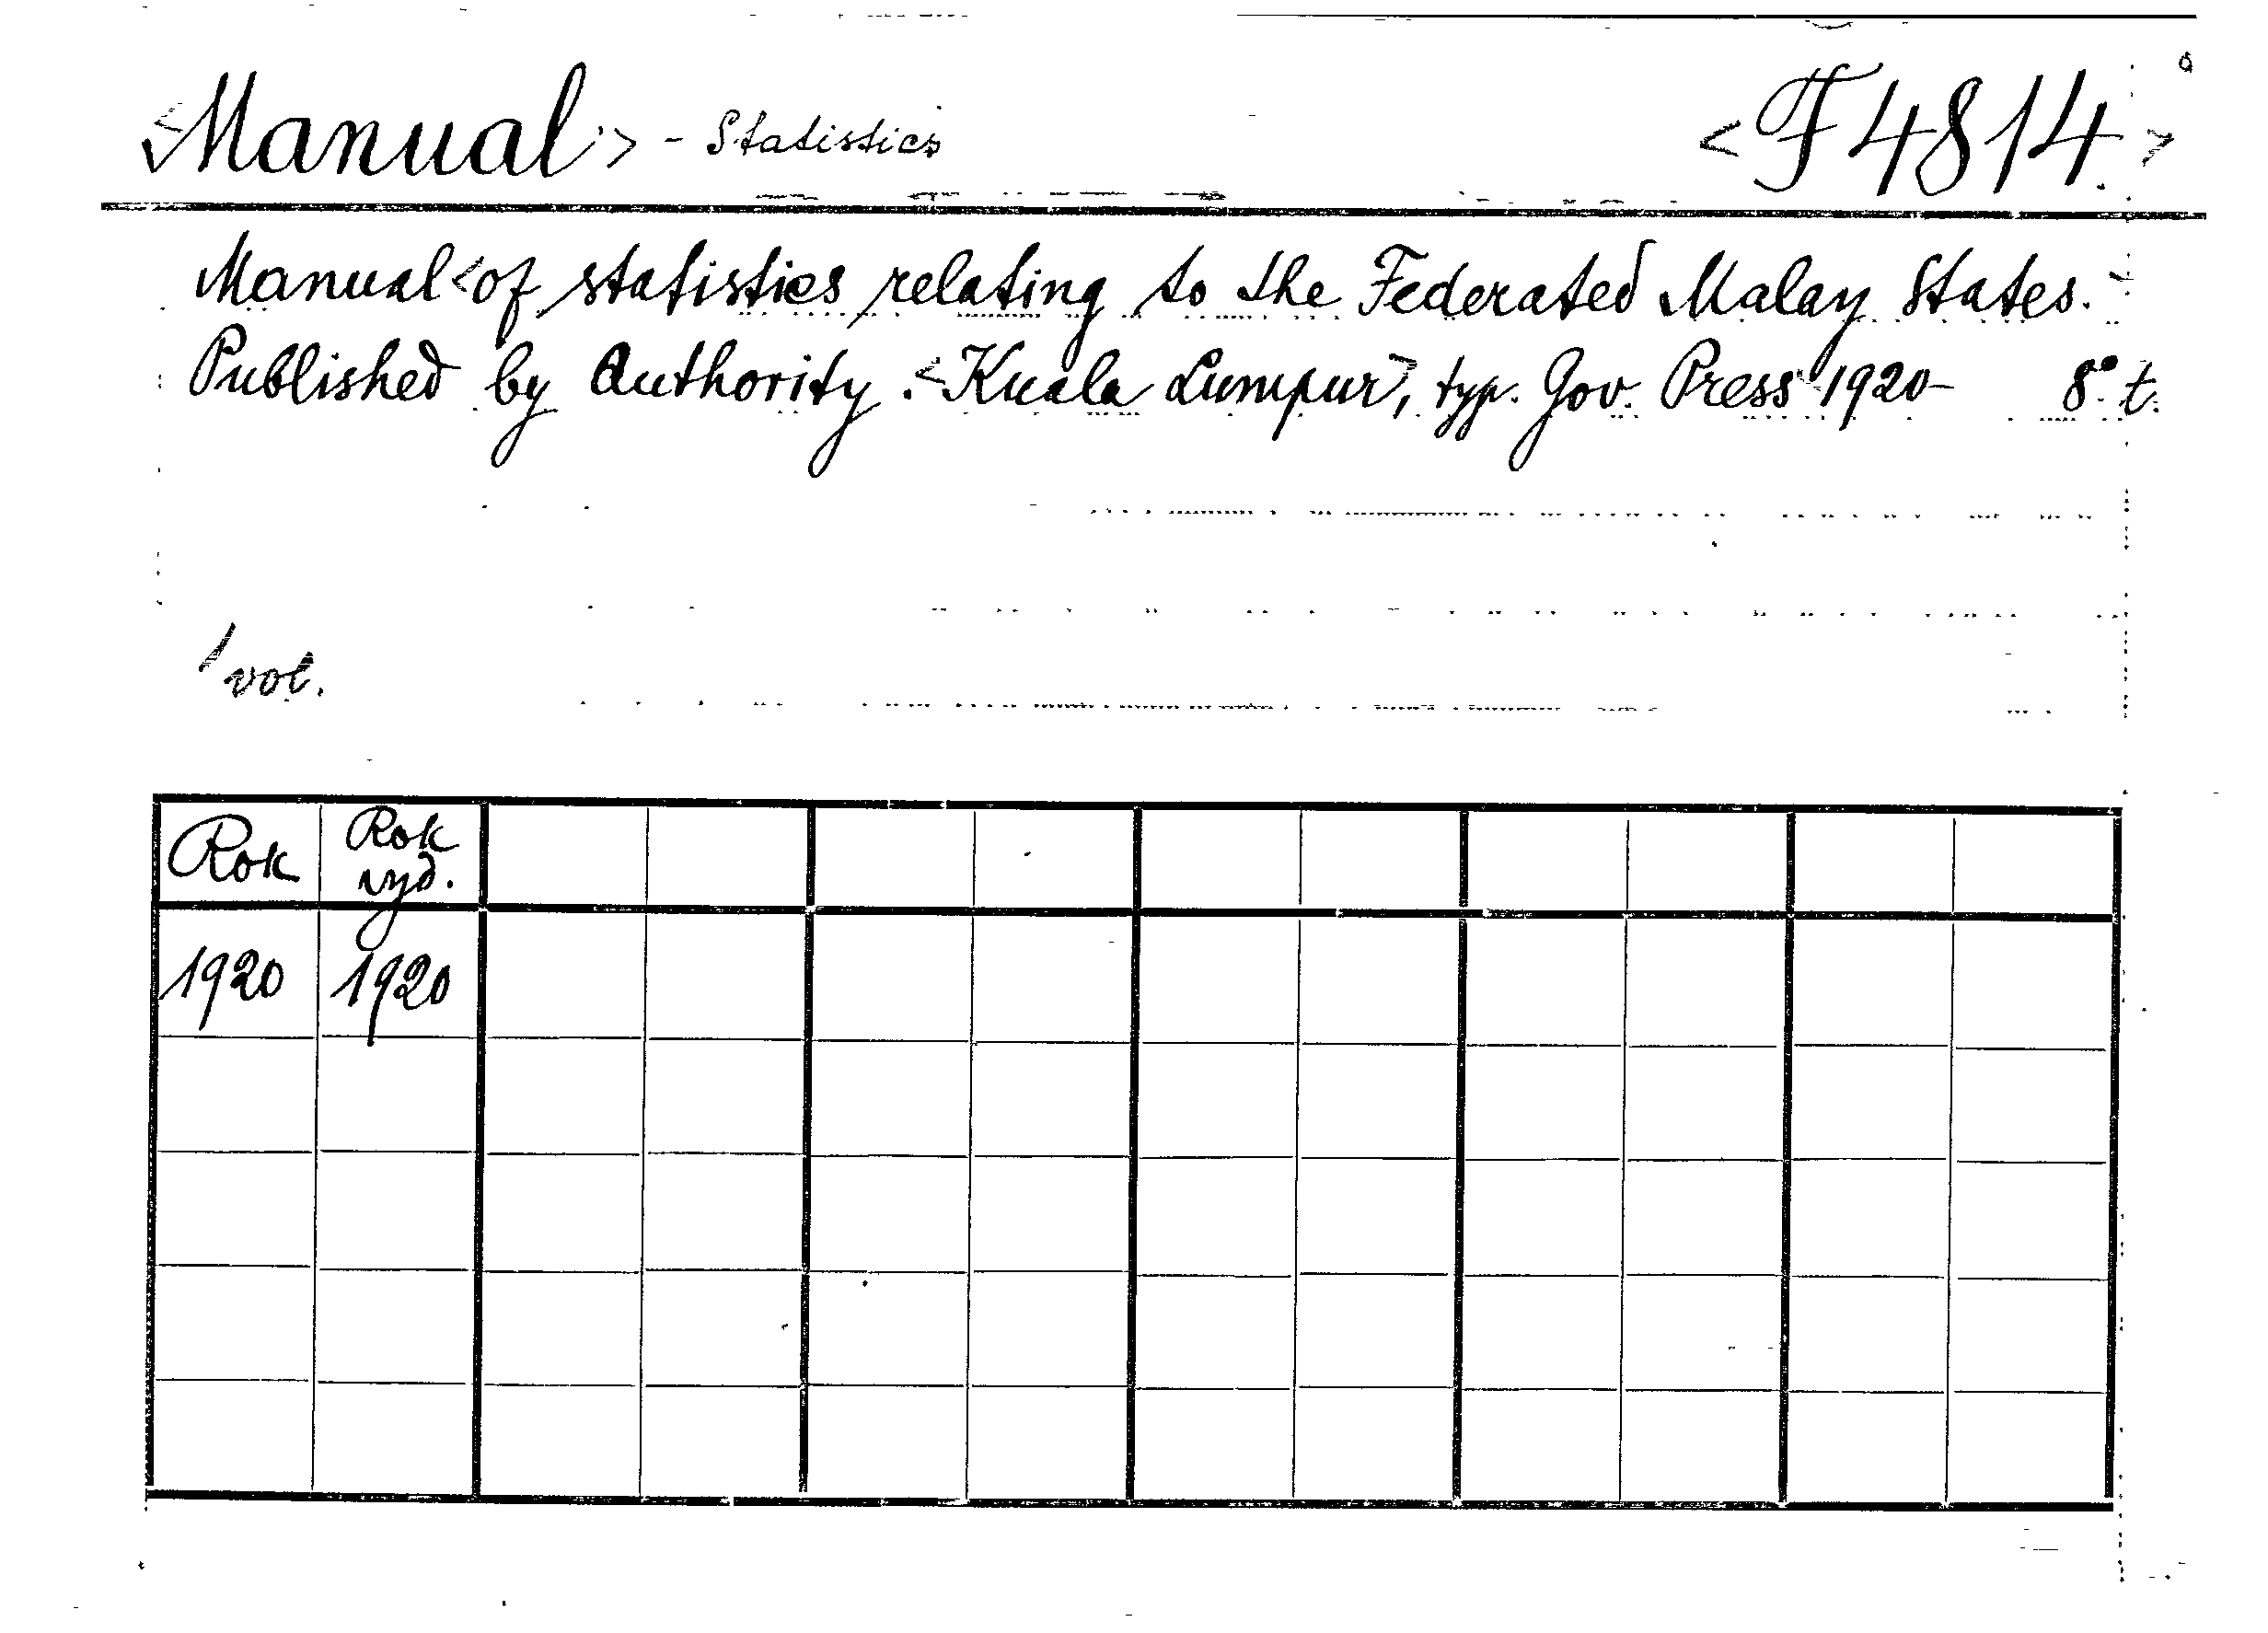 <Manual> - Statistics <F 4814.>
Manual <of statistics relating to the Federated Malay States.
Published by Authority. <Kuala Lumpur>, typ. Gov. Press 1920- 8° t.
1 vol.
Rok Rok
vyd.
1920 1920